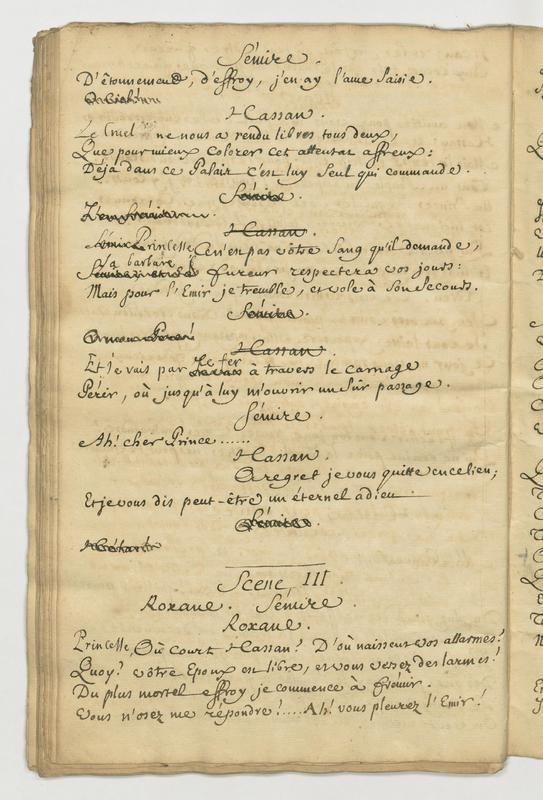 Sémire.
D'êtonnement, d'effroy, j'en ay l'ame saisie.
Hassan.
Le Cruel ne nous a rendu libres tous deux,
Que pour mieux colorer cet attentat affreux:
Déja dans ce Palais c'est luy seul qui commande.
Sémire.
Hassan.
Princesse, Ce n'est pas vôtre sang qu'il demande,
Sa barbare fureur respectera vos jours:
Mais pour l'Emir je tremble, et vole à son secours.
Sémire.
Hassan.
Et je vais par le fer à travers le carnage
Périr, où jusqu'à luy m'ouvrir un sûr passage.
Sémire.
Ah! cher Prince......
Hassan.
A regret je vous quitte en ce lieu;
Et je vous dis peut-être un éternel adieu
Sémire.
Scene III.
Roxane. Sémire.
Roxane.
Princesse, Où court Hassan? D'où naissent vos allarmes?
Quoy? vôtre Epoux est libre, et vous versez des larmes!
Du plus mortel effroy je commence à frémir.
Vous n'osez me répondre!.... Ah! vous pleurez l'Emir!